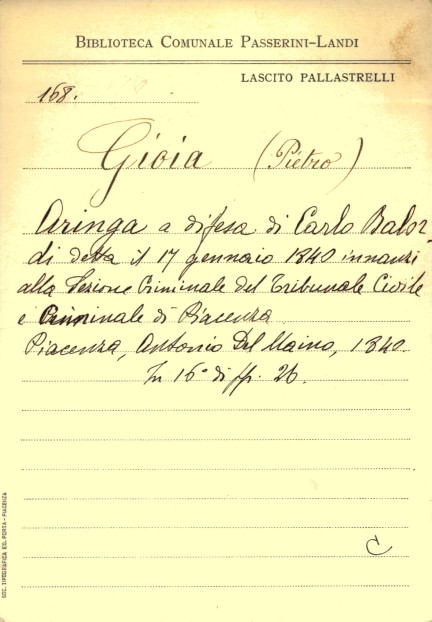 BIBLIOTECA COMUNALE PASSERINI-LANDI
LASCITO PALLASTRELLI
168.
Gioia (Pietro)
Aringa a difesa di Carlo Balor
di detta il 17 gennaio 1840 innanzi
alla Sezione Criminale del Tribunale Civile
e Criminale di Piacenza
Piacenza, Antonio Del Maino, 1840.
In 16° di ff. 26.
C
SOC. TIPOGRAFICA ED. PORTA - PIACENZA